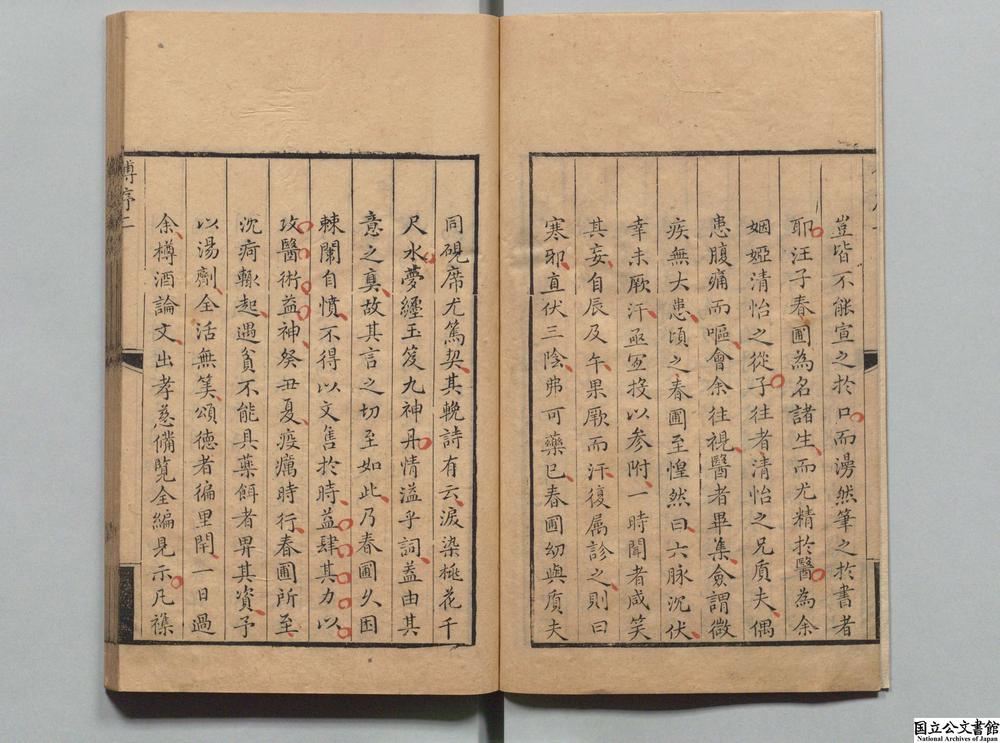 豈皆不能宣之於口而漫然筆之於書者
耶汪子春圃為名諸生而尤精於醫為余
姻婭清怡之從子往者清怡之兄質夫偶
患腹痛而嘔會余往視醫者畢集僉謂微
疾無大患頃之春圃至惶然曰六脉沉伏
幸未厥汗亟宜投以参附一時聞者咸笑
其妄自辰及午果厥而汗復属診之則曰
寒邪直伏三陰弗可藥已春圃幼與質夫
同硯席尤篤契其輓詩有云淚染桃花千
尺水夢纏玉笈九神丹情溢乎詞蓋由其
意之真故其言之切至如此乃春圃久困
棘闈自憤不得以文售於時益肆其力以
攻醫術益神癸丑夏疫癘時行春圃所至
沈疴輙起遇貧不能具藥餌者畀其資予
以湯劑全活無筭頌德者徧里閈一日過
余樽酒論文出孝慈備覽全編見示凡襍
博序二
国立公文書館
National Archives of Japan